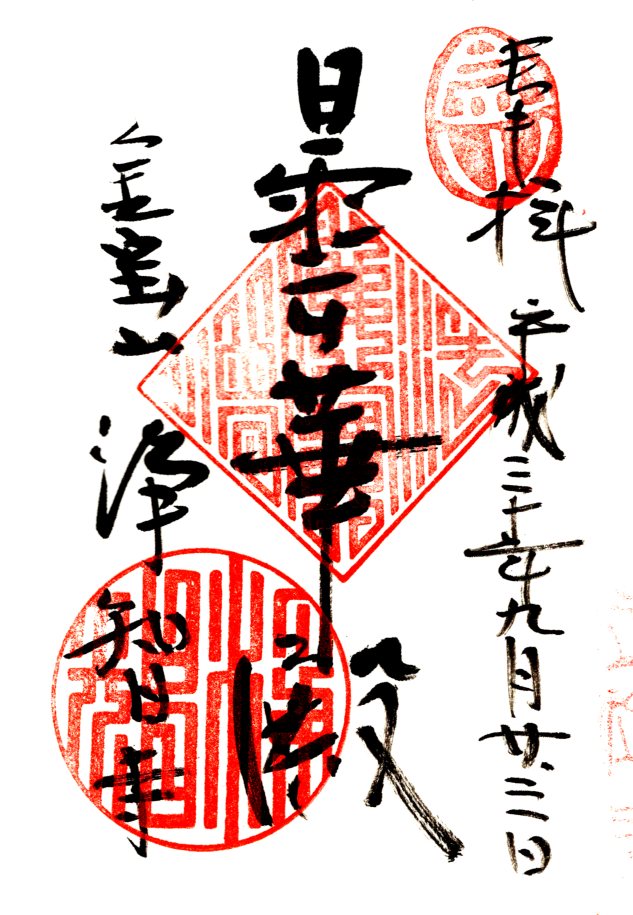 奉拝 平成三十年九月廿三日
曇華殿
金宝山 浄智寺